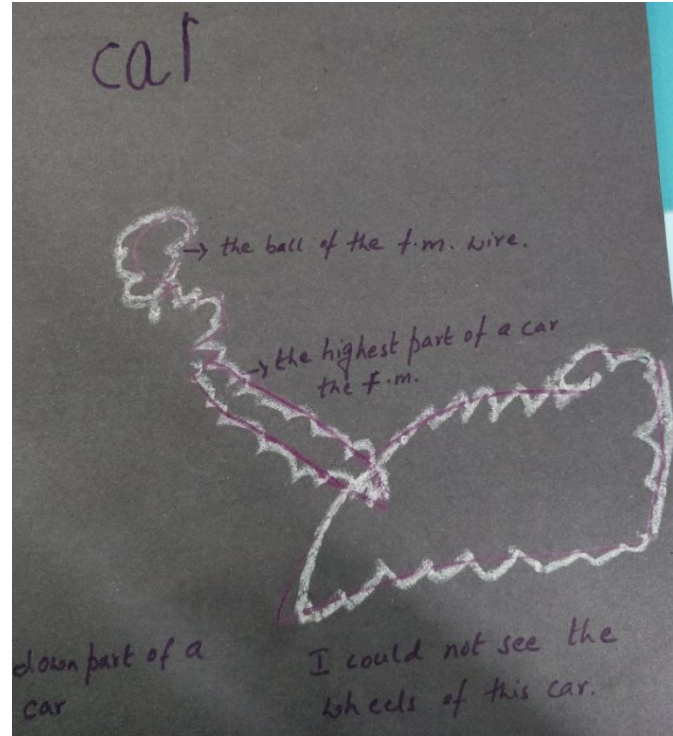 car
→ the ball of the f.m. wire.
→ the highest part of a car
the f.m.
down part of a
car
I could not see the
wheels of this car.